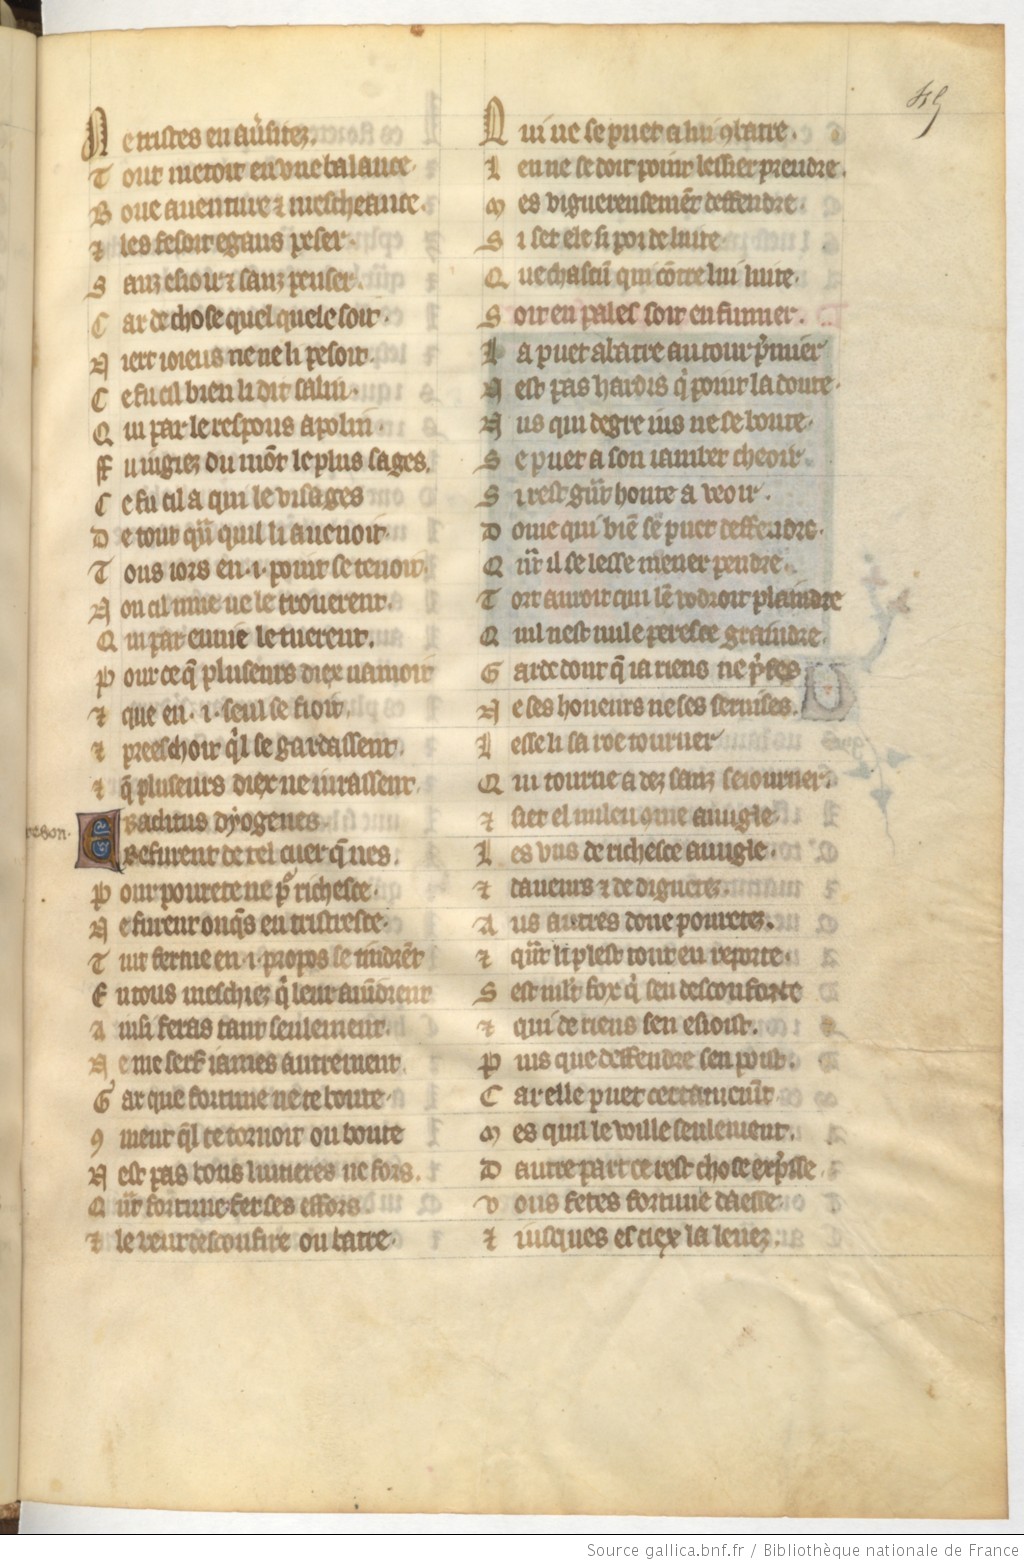 49
Ne tristes en au̾sitez.
Tout metoit en vne balance.
Bone auenture ⁊ mescheance.
⁊ les fesoit egaus peser.
Sanz esioir ⁊ sanz penser.
Car de chose quel quele soit.
Niert ioieus ne ne li pesoit.
Ce fu cil bien li dit salin.
Qui par le respons apolin.
Fu iugiez du mōt le plus sages.
Ce fu cil a qui le visages
De tout qn̄ quil li auenoit.
Tous iors en .i. point se tenoit.
Non cil mue ne le trouerent.
Qui par enuie le tuerent.
Pour ce q̄ pluseurs diex namoit
⁊ que en .i. seul se fioit.
⁊ preeschoit q̓l se gardassent.
⁊ q̄ pluseurs diex ne iurassent
reson.
Eraclitus dyogenes.
Refurent de tel cuer q̄ nes.
Pour pourete ne pͬ richesce.
Ne furent onq̄s en tristresce.
Tuit ferme en .i. propos se tindrēt
Et tous meschiez q̓ leur auīdrent
Ainsi feras tant seulement.
Ne me serf iames autrement.
Gar que fortune ne te boute
9ment q̓l te tornoit ou boute
Nest pas bons luitieres ne fors.
Qn̄t fortune fet ses effors.
⁊ le veut desconfire ou batre.
Qui ne se puet a lui 9batre.
Len ne se doit point lessier prendre.
Mes viguereusemēt deffendre.
Si set ele si poi de luite
Que chascū qui cōtre lui luite.
Soit en pales soit en fumier.
La puet abatre au tour p̓mier
Nest pas hardis q̓ point la doute.
Nus qui degre ius ne se boute.
Se puet a son iambet cheoir.
Si rest gn̄t honte a veoir.
Dome qui biē se puet deffendre.
Qn̄t il se lesse mener pendre.
Tort auroit qui lē vodroit plaindre
Quil nest nule peresce graindre.
Garde donc q̄ ia riens ne p̓ses
Ne ses honeurs ne ses seruises.
Lesse li sa roe tourner
Qui tourne a dez sanz seiourner.
⁊ siet el milieu ome auugle.
Les vns de richesce auugle.
⁊ daueurs ⁊ de dignetez.
Aus autres done pouretez.
⁊ qn̄t li plest tout en reporte.
Sest mlt fox q̓ sen desconforte
⁊ qui de riens sen esioist.
Puis que deffendre sen puist.
Car elle puet certainemēt.
Mes quil le voille seulement.
Dautre part ce rest chose exp̓sse.
Vous fetes fortune daesse.
⁊ iusques es ciex la leuez.
Source gallica.bnf.fr / Bibliothèque nationale de France